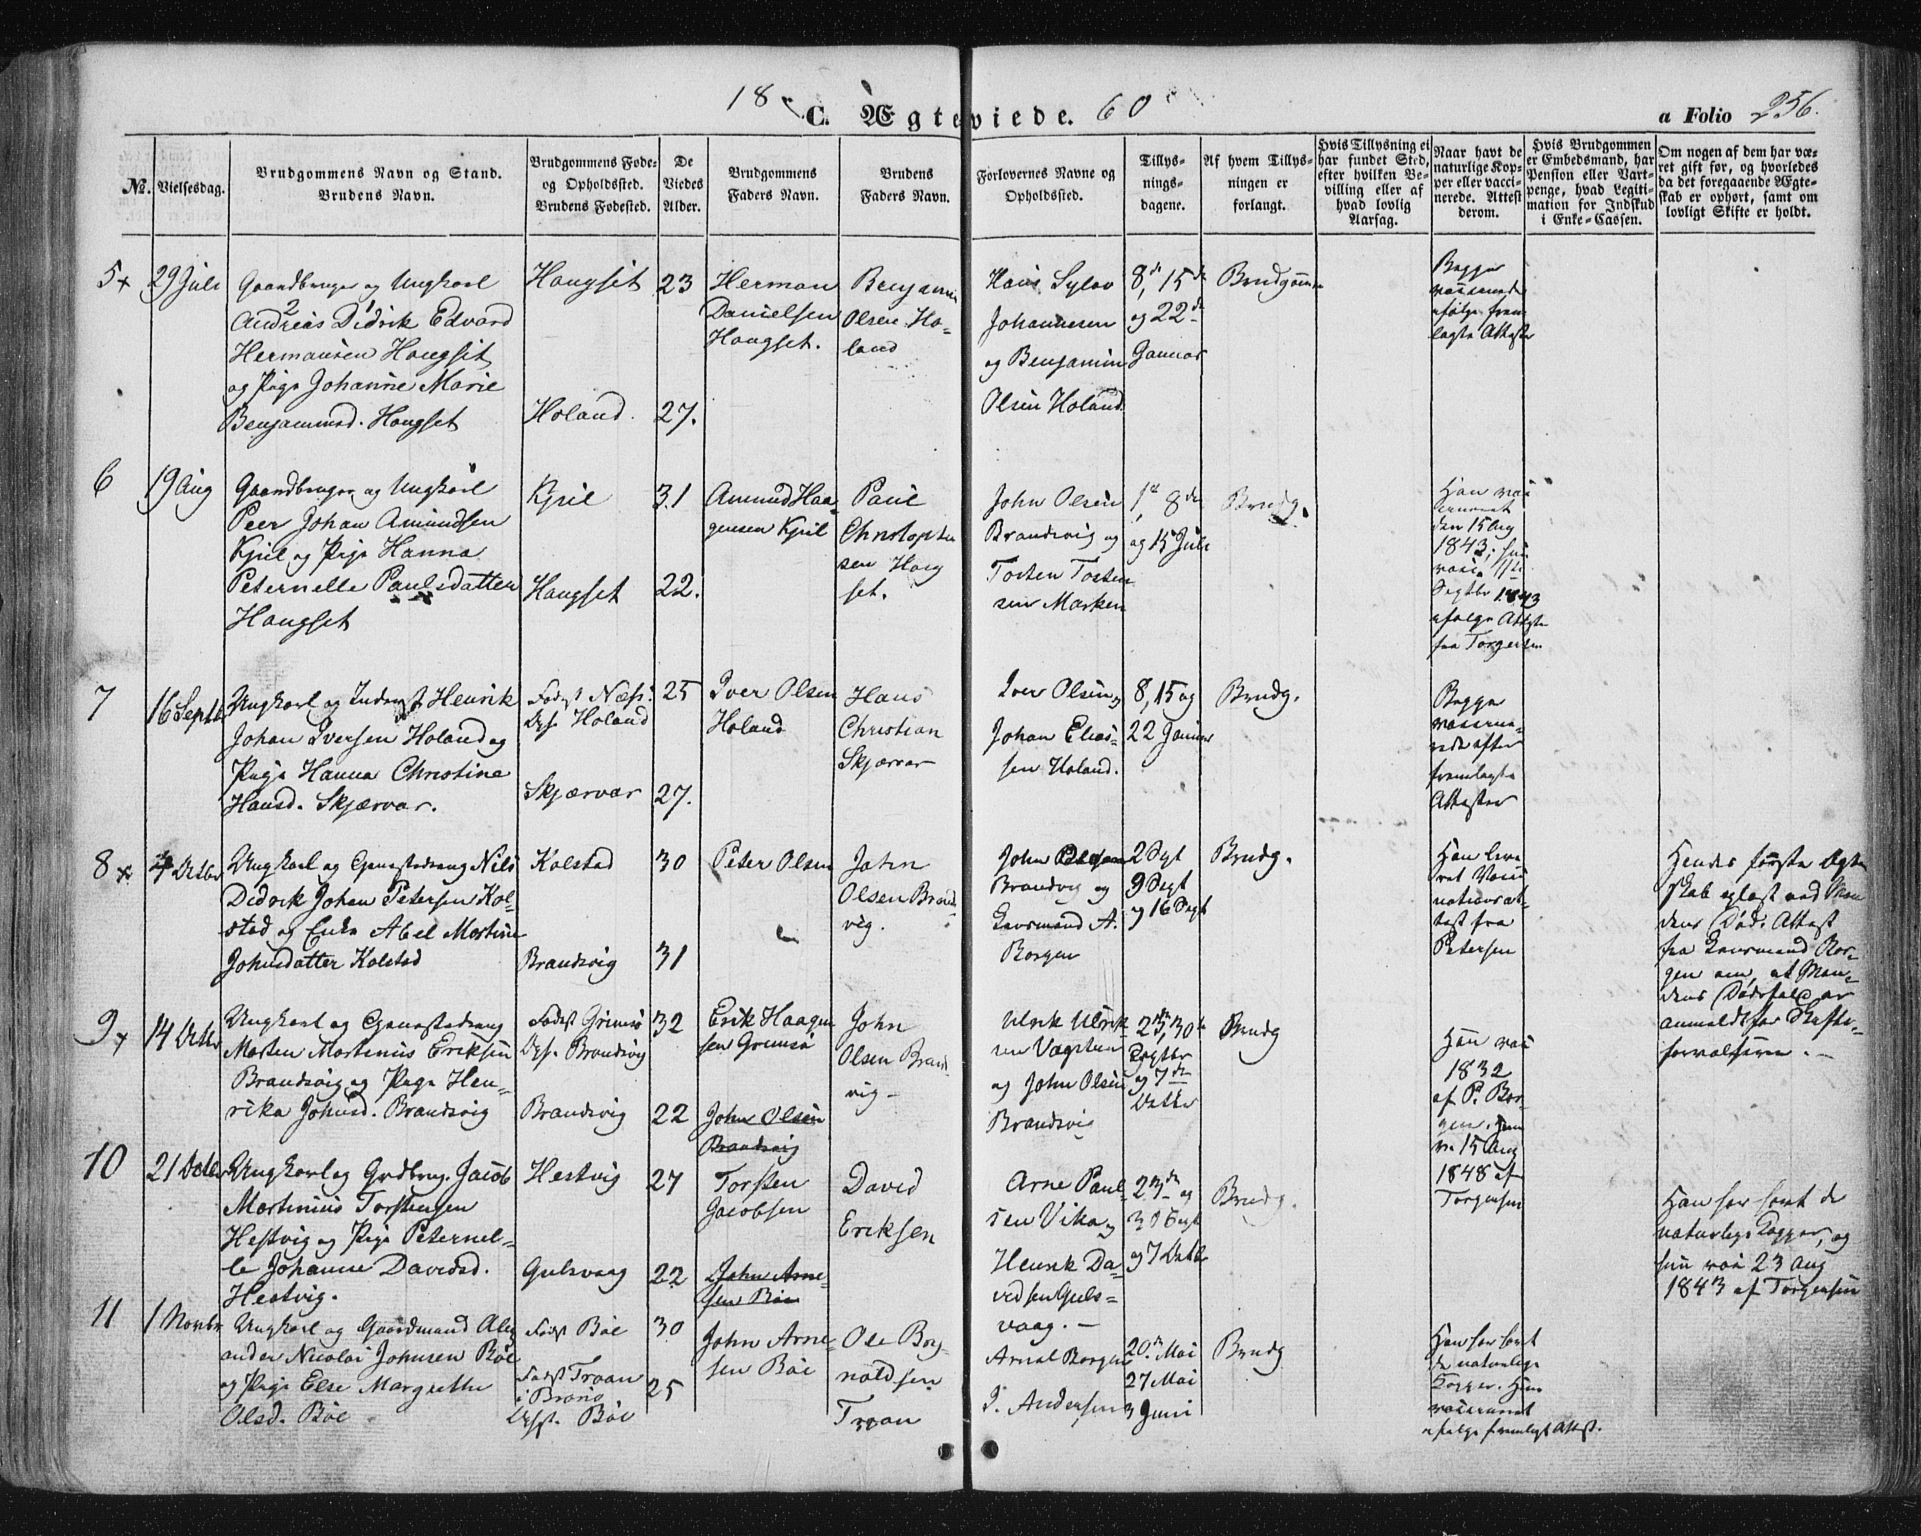 18 C. Ægteviede. 60
a Folio 256.
No.
Vielsesdag.
Brudgommens Navn og Stand.
Brudens Navn.
Brudgommens Føde-
og Opholdssted.
Brudens Fødested.
De
Viedes
Alder.
Brudgommens
Faders Navn.
Brudens
Faders Navn.
Forlovernes Navne og
Opholdssted.
Tillys-
nings-
dagene.
Af hvem Tillys-
ningen er
forlangt.
Hvis Tillysning ei
har fundet Sted,
efter hvilken Be-
villing eller af
hvad lovlig
Aarsag.
Naar havt de
naturlige Kop-
per eller vacci-
nerede. Attest
derom.
Hvis Brudgommen
er Embedsmand, har
Pension eller Vart-
penge, hvad Legiti-
mation for Indskud
i Enke-Cassen.
Om nogen af dem har væ-
ret gift før, og hvorledes
da det foregaaende Ægte-
skab er ophørt, samt om
lovligt Skifte er holdt.
5 29 Juli
Gaardbruger og Ungkarl
Andreas Didrik Edvard
Hermansen Hougset
og Pige Johanne Marie
Benjaminsd. Hougset
Hougset
Holand.
23
27.
Herman
Danielsen
Hougset.
Benjamin
Olsen Ho-
land
Hans Sylov
Johannesen
og Benjamin
Olsen Holand
8de, 15de
og 22de
Januar
Brudgommen
Begge
vaccinerede
ifølge frem-
lagte Attester
6 19 Aug
Gaardbruger og Ungkarl
Peer Johan Amundsen
Kjiil og Pige Hanna
Peternelle Paulsdatter
Hougset
Kjiil
Hougset
31
22.
Amund Haa-
gensen Kjiil
Paul
Christophe
sen Houg
set.
John Olsen
Brandsvig og
Torsten Torsten
sen Marken
1ste, 8de
og 15de Juli
Brudg.
Han vac
cineret
den 15 Aug
1843, hun
vacc. 11te
Septbr 1843
ifølge Attester
fra Torgersen
7 16 Septb
Ungkarl og Inderst Henrik
Johan Iversen Holand og
Pige Hanna Christine
Hansd. Skjærvær.
Født Næs.
Ops. Holand
Skjærvær
25
27.
Iver Olsen
Holand
Hans
Christian
Skjærvær
Iver Olsen og
Johan Elias-
sen Holand.
8, 15 og
22 Januar
Brudg.
Begge
vaccine-
rede efter
fremlagte
Attester
8 4 Octbr
Ungkarl og Gaardsdreng Nils
Didrik Johan Petersen Kol-
stad og Enke Abel Martine
Johnsdatter Kolstad
Kolstad
Brandsvig
30
31
Peter Olsen
John
Olsen Brands-
vig.
John Olsen
Brandsvig og
Lensmand A.
Borgen
2 Sept
9 Sept
og 16 Sept
Brudg.
Han leve
ret Vacci
nationsat-
test fra
Petersen
Hendes første Ægte
skab opløst ved Man
dens Død. Attest
fra Lensmand Bor-
gen om, at Man-
dens Dødsfald er
anmeldt for Skifte-
forvalteren. -
9 14 Octbr
Ungkarl og Gaardsdreng
Morten Martinus Eriksen
Brandsvig og Pige Hen-
rika Johnsd. Brandsvig
Født Grimsø
Ops. Brandsvig
Brandsvig
32
22
Erik Haagen
sen Grimsø
John Olsen
Brandsvig
John
Olsen Brands-
vig -
Ulrik Ulrik-
sen
og John Olsen
Brandsvig
23de, 30te
Septbr
og 7de
Octbr
Brudg
Han vac
1832
af P. Bor-
gen, hun
v. 15 Aug
1848 af
Torgersen
10 21 Octbr
Ungkarl og Grdbrug. Jacob
Martinus Torstensen
Hestvig og Pige Peternel-
le Johanne Davidsd.
Hestvig.
Hestvig
Gulsvaag
27
22
Torsten
Jacobsen
John Arne-
sen Bøe
David
Eriksen
Arne Paul-
sen Vika og
Henrik Da-
vidsen Guls-
vaag. -
23de og
30 Sept
og 7 Octbr
Brudg.
Han har havt de
naturlige Kopper, og
hun vac 23 Aug
1843 af Torgersen
11 1 Novbr
Ungkarl og Gaardmand Alex
ander Nicolai Johnsen Bøe
og Pige Else Margrethe
Olsd. Bøe
Født Bøe
Født Traan
i Brønø
Opst. Bøe
30
25
John Arne-
sen Bøe
Ole Bog-
noldsen
Traan
Arnol Borgen
P. Andersen
20de Mai
27 Mai
3 Juni
Brudg
Han har havt
de naturlige
Kopper. Hun
vaccineret
ifølge fremlagt Attest.